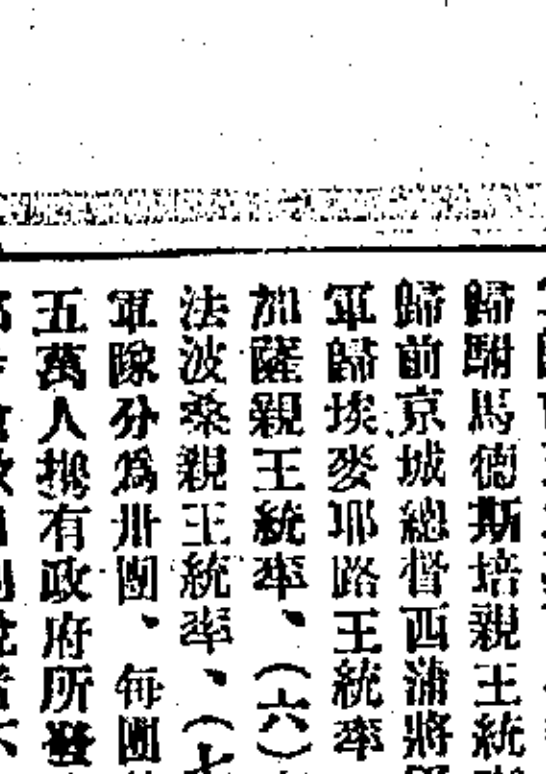 歸駙馬德斯培親王統
歸前京城總督西浦將
軍歸埃麥耶路王統率
加薩親王統率、(六)
法波桑親王統率、(七
軍隊分爲卅團、每團
五萬人擁有政府所發